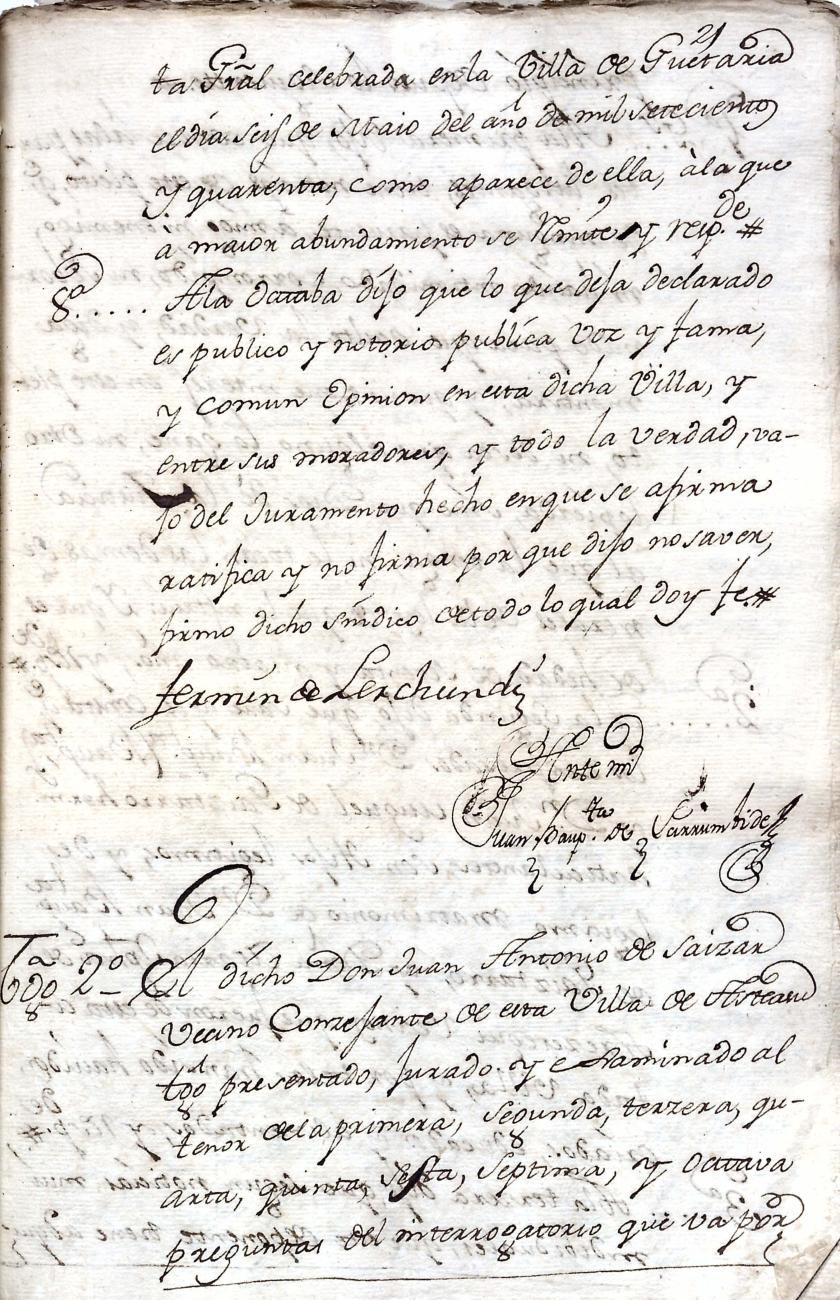 21
ta Grãl celebrada en la Villa de Guetaria
el dia seis de Maio del año de mil setecientos
y quarenta, como aparece de ella, à la que
a maior abundamiento se Rmite y resp.de #
8ª..... A la octaba dijo que lo que deja declarado
es publico y notorio publica voz y fama,
y comun Opinion en esta dicha Villa, y
entre sus moradores, y todo la verdad, va-
jo del Juramento hecho en que se afirma
ratifica y no firma por que dijo no saver,
firmo dicho sindico de todo lo qual doy fe. #
fermin de Lerchundi
Ante mi
Juan Baup.ta de Larrumbide
Tgo 2º El dicho Don Juan Antonio de Saizar
Vecino Conzejante de esta Villa de
tgo presentado, Jurado y examinado al
tenor de la primera, segunda, terzera, qu-
arta, quinta, sesta, septima, y octtava
preguntas del interrogatorio que va por